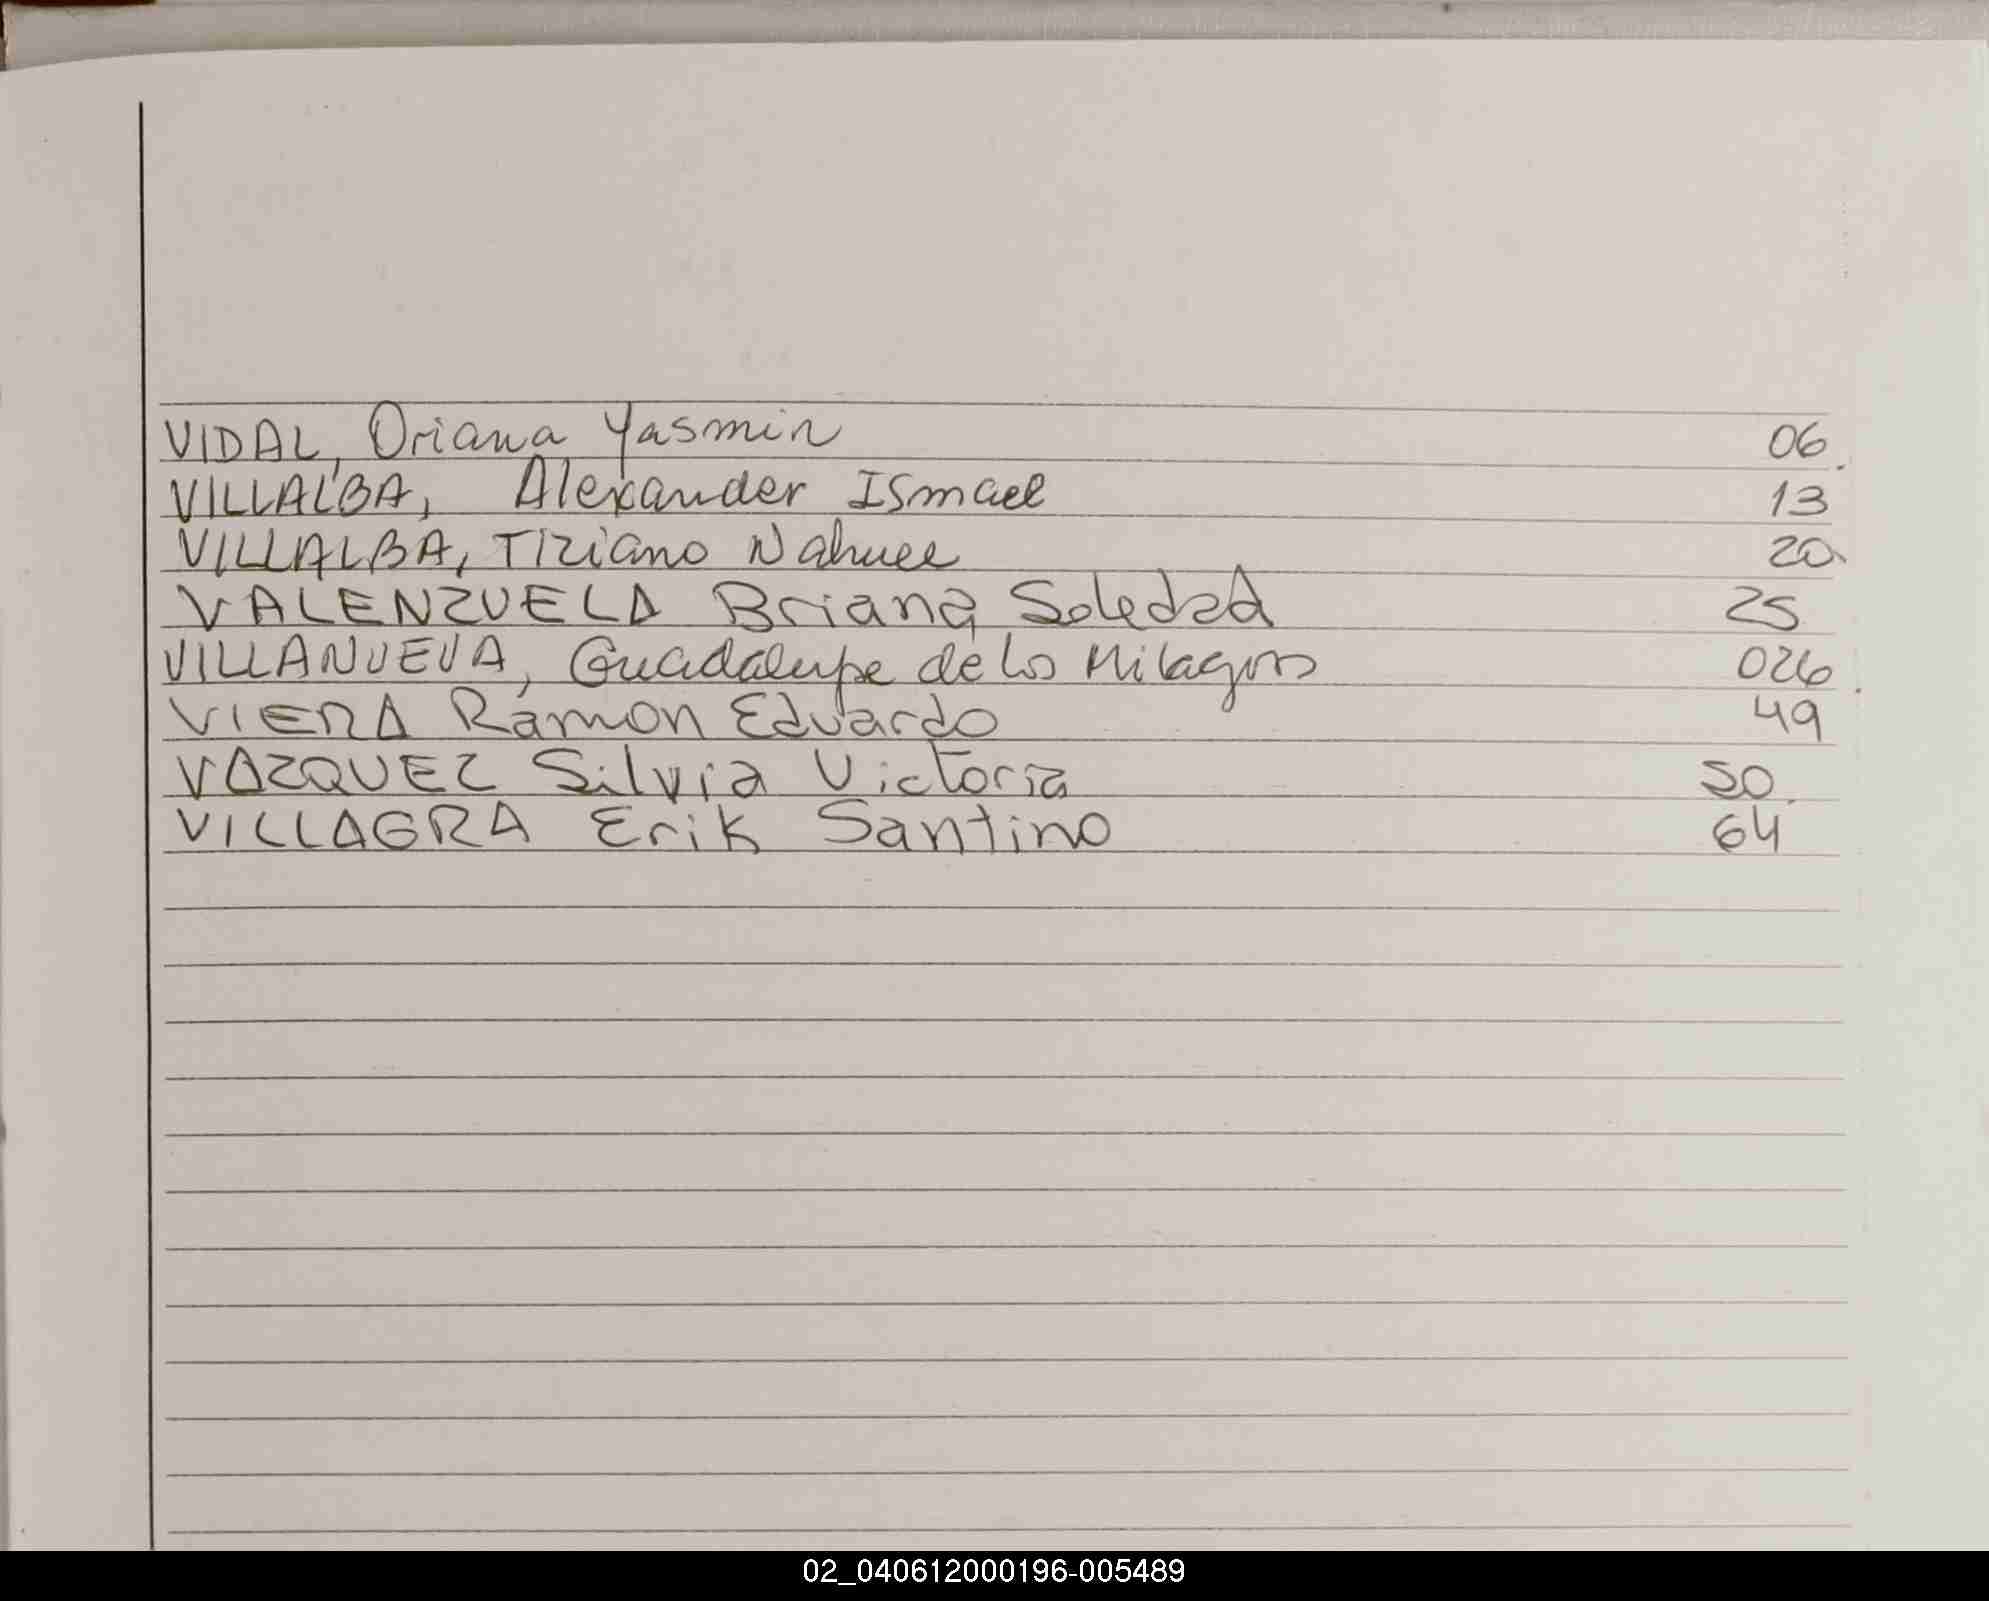 VIDAL, Oriana Yasmin 06.
VILLALBA, Alexander Ismael 13
VILLALBA, Tiziano Nahuel 20.
VALENZUELA Briana Soledad 25
VILLANUEVA, Guadalupe de los Milagros 026.
VIERA Ramon Eduardo 49
VAZQUEZ Silvia Victoria 50.
VILLAGRA Erik Santino 64
02_040612000196-005489